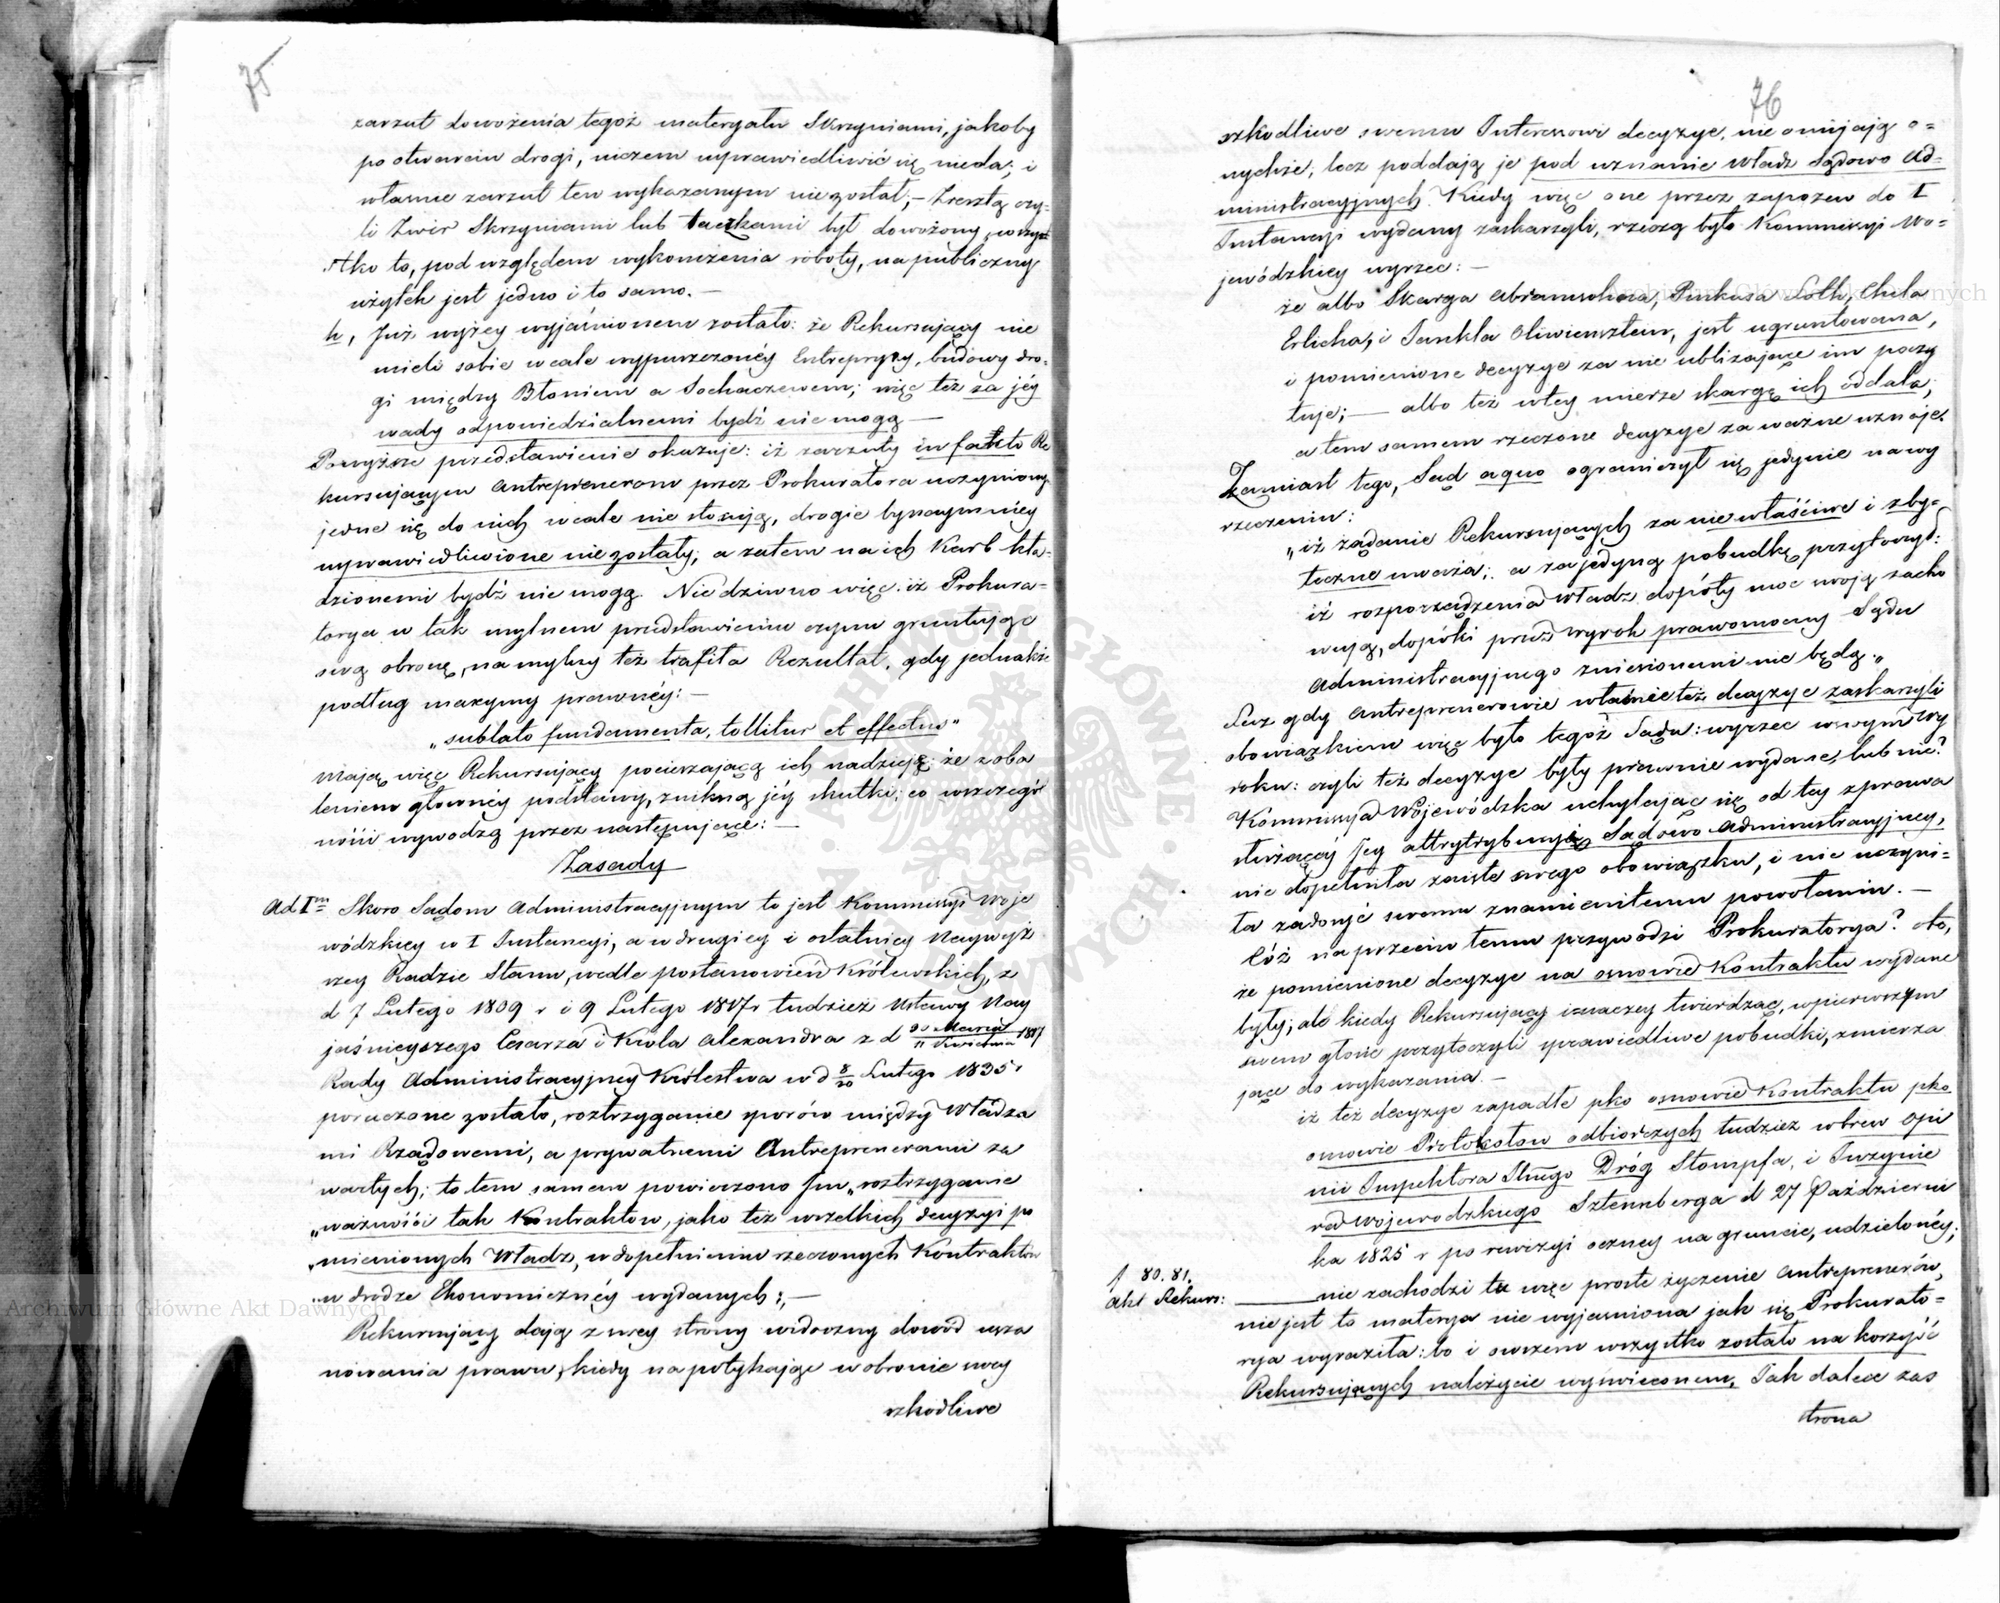 75
zarzut dowożenia tegoż materyału Skrzyniami, jakoby
po otwarciu drogi, niczem usprawiedliwić się nieda; i
własnie zarzut ten wykazanym nie został; – Zresztą czy-
li Żwir Skrzyniami lub taczkami był dowożony, wszy-
stko to, pod względem wykończenia roboty, na publiczny
użytek jest jedno i to samo. –
h, Już wyżey wyjaśnionem zostało: że Rekursujący nie
mieli sobie wcale wypuszczonéy Entrepryzy, budowy dro-
gi między Błoniem a Sochaczewem; więc też za jéy
wady odpowiedzialnemi bydź nie mogą —
Powyższe przedstawienie okazuje: iż zarzuty in facto Re
kursującym Antreprenerom przez Prokuratora uczynione
jedne się do nich wcale nie stosują, drogie bynaymniéy
usprawiedliwione nie zostały; a zatem na ich karb kła-
dzionemi bydź nie mogą. Nie dziwno więc: iż Prokura-
torya w tak mylnem przedstawieniu czynu gruntując
swą obronę, na mylny też trafiła Rezultat, gdy jednakże
podług maxymy prawnéy: –
„sublato fundamenta, tollitur et effectus"
mają więc Rekursujący pocieszającą ich nadzieję: że z oba
leniem głownéy podstawy, znikną jéy skutki; co wszczegól
ności wywodzą przez następujące: —
Zasady
Ad Im Skoro Sądom Administracyjnym to jest Kommissyi Woje
wódzkiey w I Instancyi, a w drugiey i ostatniey Naywyż
szey Radzie Stanu, wedle postanowień Królewskich, z
d 7 Lutego 1809 r i 9 Lutego 1817r tudzież Ustawy Nay
jaśnieyszego Cesarza i Króla Alexandra z d 30 Marca / 11 Kwietnia 1817
Rady Administracyjney Królestwa w d 8/20 Lutego 1835 r
poruczone zostało, roztrzyganie sporów między Władza
mi Rządowemi, a prywatnemi Antreprenerami za
wartych; to tem samem powierzono Im „roztrzyganie
„ważności tak Kontraktow, jako też wszelkich decyzyi po
„mienionych Władz, w dopełnieniu rzeczonych Kontraktów
„w drodze Ekonomicznéy wydanych:„ —
Rekursujący dają z swey strony widoczny dowód usza
nowania prawu, kiedy napotykając w obronie swey
szkodliwe
76
szkodliwe swemu Interesowi decyzye, nie omijają o-
nychże; lecz poddają je pod uznanie Władz Sądowo Ad-
ministracyjnych. Kiedy więc one przez zapozew do I
Instancyi wydany zaskarzyli, rzeczą było Kommissyi Wo-
jewódzkiey wyrzec: —
że albo Skarga Abramsohna, Pinkusa Loth, Chila
Erlicha, i Jankla Oliwensztein, jest ugruntowana,
i pomienione decyzye za nie ubliżające im poczy
tuje; — albo też w tey mierze skargę ich oddala;
a tem samem rzeczone decyzye za ważne uznaje.
Zamiast tego, Sąd aquo ograniczył się jedynie na wy
rzeczeniu:
„iż żądanie Rekursujących za nie właściwe i zby-
teczne uważa; a za jedyną pobudkę przytoczył:
iż rozporządzenia Władz dopóty moc swoją zacho
wują, dopóki przez wyrok prawomocny Sądu
Administracyjnego zniesionemi nie będą.„
Lecz gdy Antreprenerowie właśnie też decyzye zaskarzyli
obowiązkiem więc było tegoż Sądu: wyrzec w swym wy
roku: czyli też decyzye były prawnie wydane, lub nie?
Kommissya Wojewódzka uchylając się od tey z prawa
służącéy Jey attrytrybucyi Sądowo Administracyjney,
nie dopełniła zaiste swego obowiązku, i nie uczyni-
ła zadosyć swemu znamienitemu powołaniu. —
Cóż naprzeciw temu przywodzi Prokuratorya? oto,
że pomienione decyzye na osnowie Kontraktu wydane
były; ale kiedy Rekursujący inaczey twierdząc, w pierwszym
swem głosie przytoczyli sprawiedliwe pobudki, zmierza
jące do wykazania –
iż też decyzye zapadłe pko osnowie Kontraktu pko
osnowie Protokołow odbiorczych tudzież wbrew opi
nii Inspektora Dróg Stompfa, i Inzynie
ra Wojewodzkiego Szternberga d 27 Październi
ka 1825 r po rewizyi oczney na gruncie, udzielonéy;
f 80. 81.
Akt Rekurs:
— nie zachodzi tu więc proste życzenie Antreprenerów,
nie jest to materya nie wyjasniona jak się Prokurato-
rya wyraziła: bo i owszem wszystko zostało na korzyść
Rekursujących należycie wyświeconem, Tak dalece zas
strona